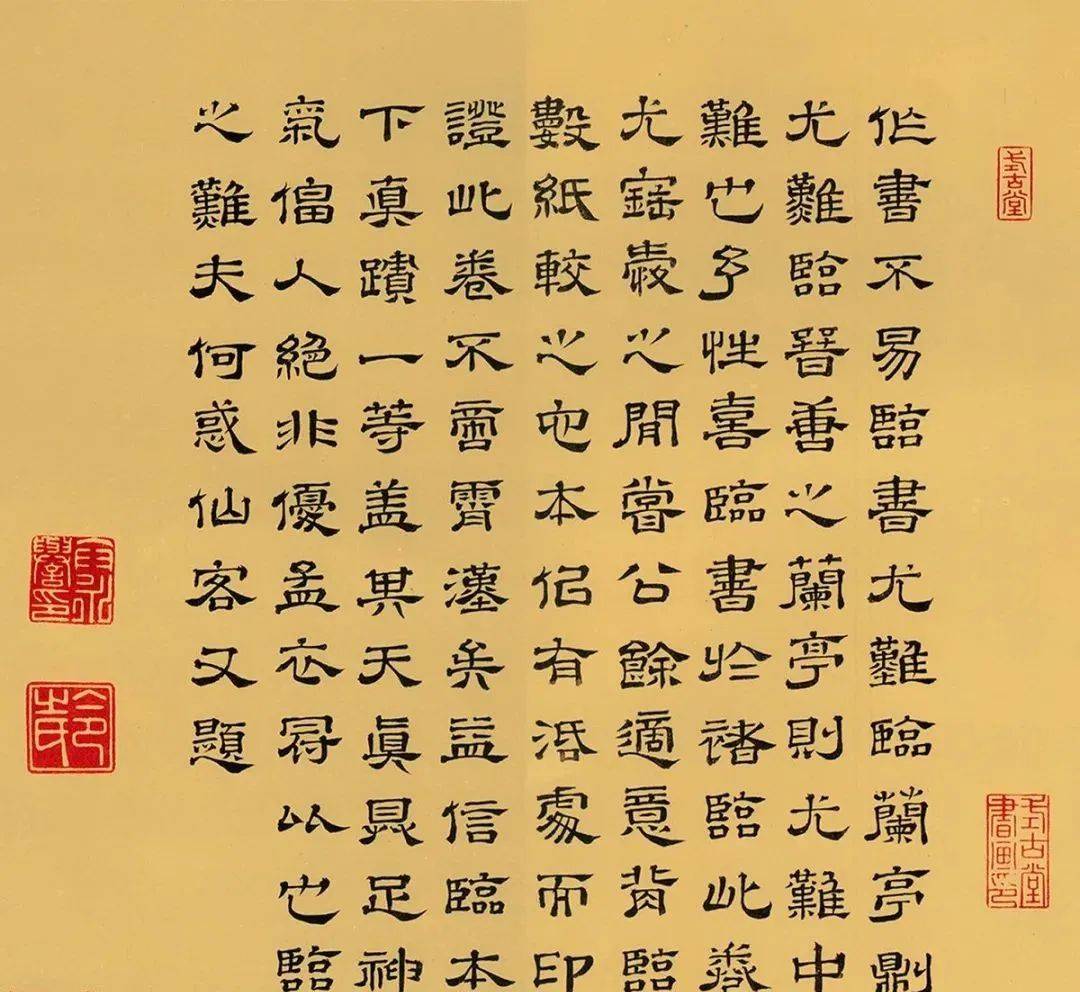 式古堂
式古堂書畫印
作書不易臨書尤難臨蘭亭則
尤難臨晉善之蘭亭則尤難中
難也予性喜臨書於褚臨此卷
尤寶愛之閒嘗公餘適意背臨
數紙較之他本似有活處而印
證此卷不啻霄漢矣益信臨本
下真蹟一等盖其天真具足神
氣偪人絕非優孟衣冠以也臨
之難夫何惑仙客又題